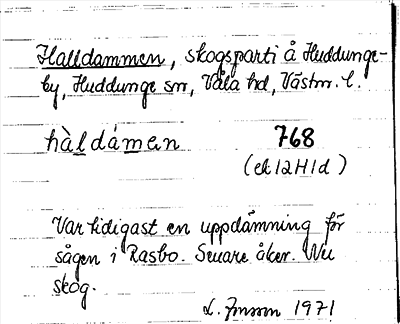 Halldammen, skogsparti å Huddunge-
by, Huddunge sn, Våla hd, Västm. l.
hàldámen 768
(ek 12H1d)
Var tidigast en uppdämning för
sågen i Rasbo. Senare åker. Nu
skog.
L. 1971